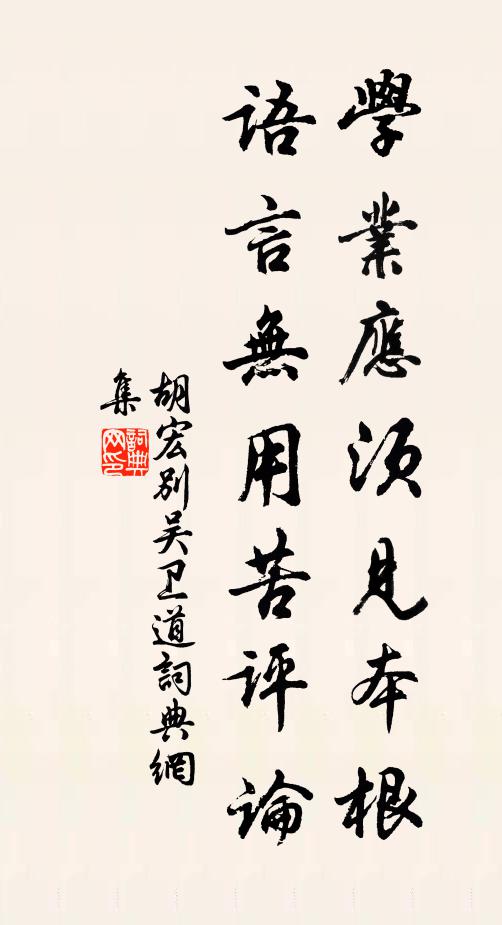 學業應須見本根
語言無用苦評論
胡宏別吴卫道詞典網
集
詞典
网印